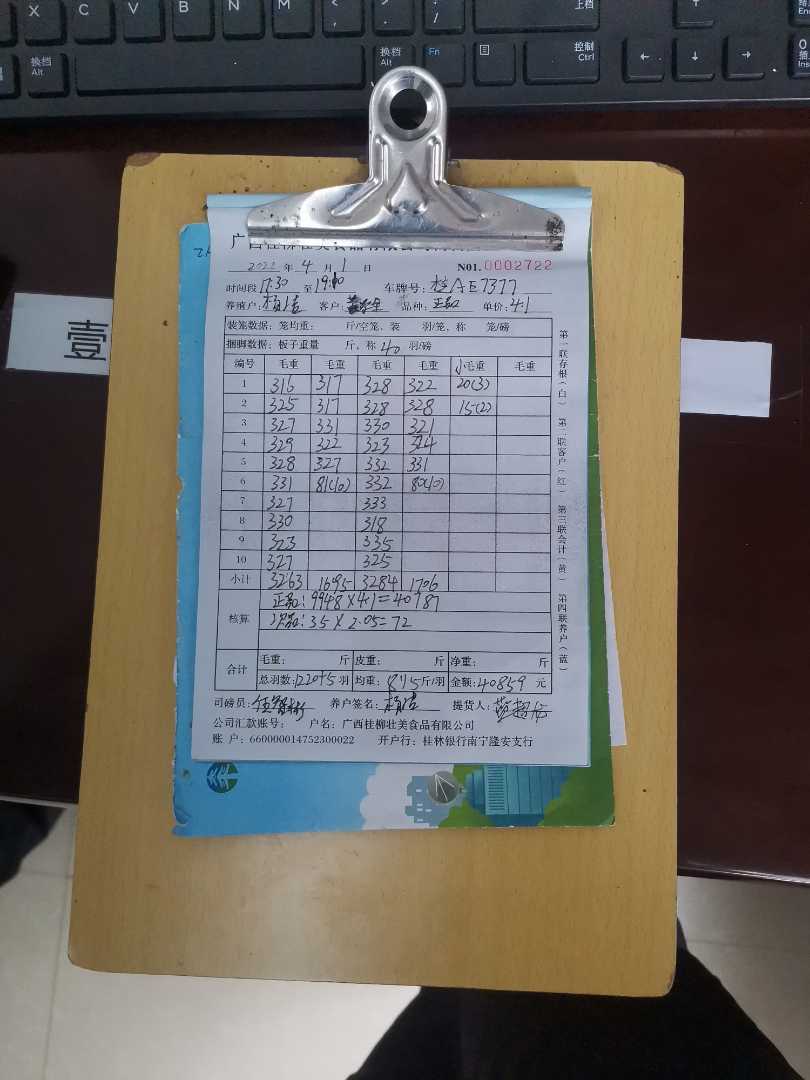 X C V B N M < > ? / 上档
换档 Alt 换档 Alt Fn 控制 Ctrl ← ↓ →
壹
2022 年 4 月 1 日 N01.0002722
时间段 17:30 至 19:00 车牌号: 桂AE7377
养殖户: 客户: 品种: 正品 单价: 4.1
装笼数据: 笼均重: 斤/空笼、装 羽/笼、称 笼/磅
捆脚数据: 板子重量 斤、称 40 羽/磅
编号 毛重 毛重 毛重 毛重 小毛重 毛重
1 316 317 328 322 20(3)
2 325 317 328 328 15(2)
3 327 331 330 321
4 329 322 323 324
5 328 327 332 331
6 331 81(10) 332 80(10)
7 327 333
8 330 318
9 323 335
10 327 325
小计 3263 1695 3284 1706
核算 正品: 9948×4.1=40787
次品: 35×2.05=72
合计 毛重: 斤 皮重: 斤 净重: 斤
总羽数: 1220+5 羽 均重: 斤/羽 金额: 40859 元
司磅员: 养户签名: 提货人:
公司汇款账号: 户名: 广西桂柳壮美食品有限公司
账 户: 660000014752300022 开户行: 桂林银行南宁隆安支行
第一联存根(白) 第二联客户(红) 第三联会计(黄) 第四联养户(蓝)